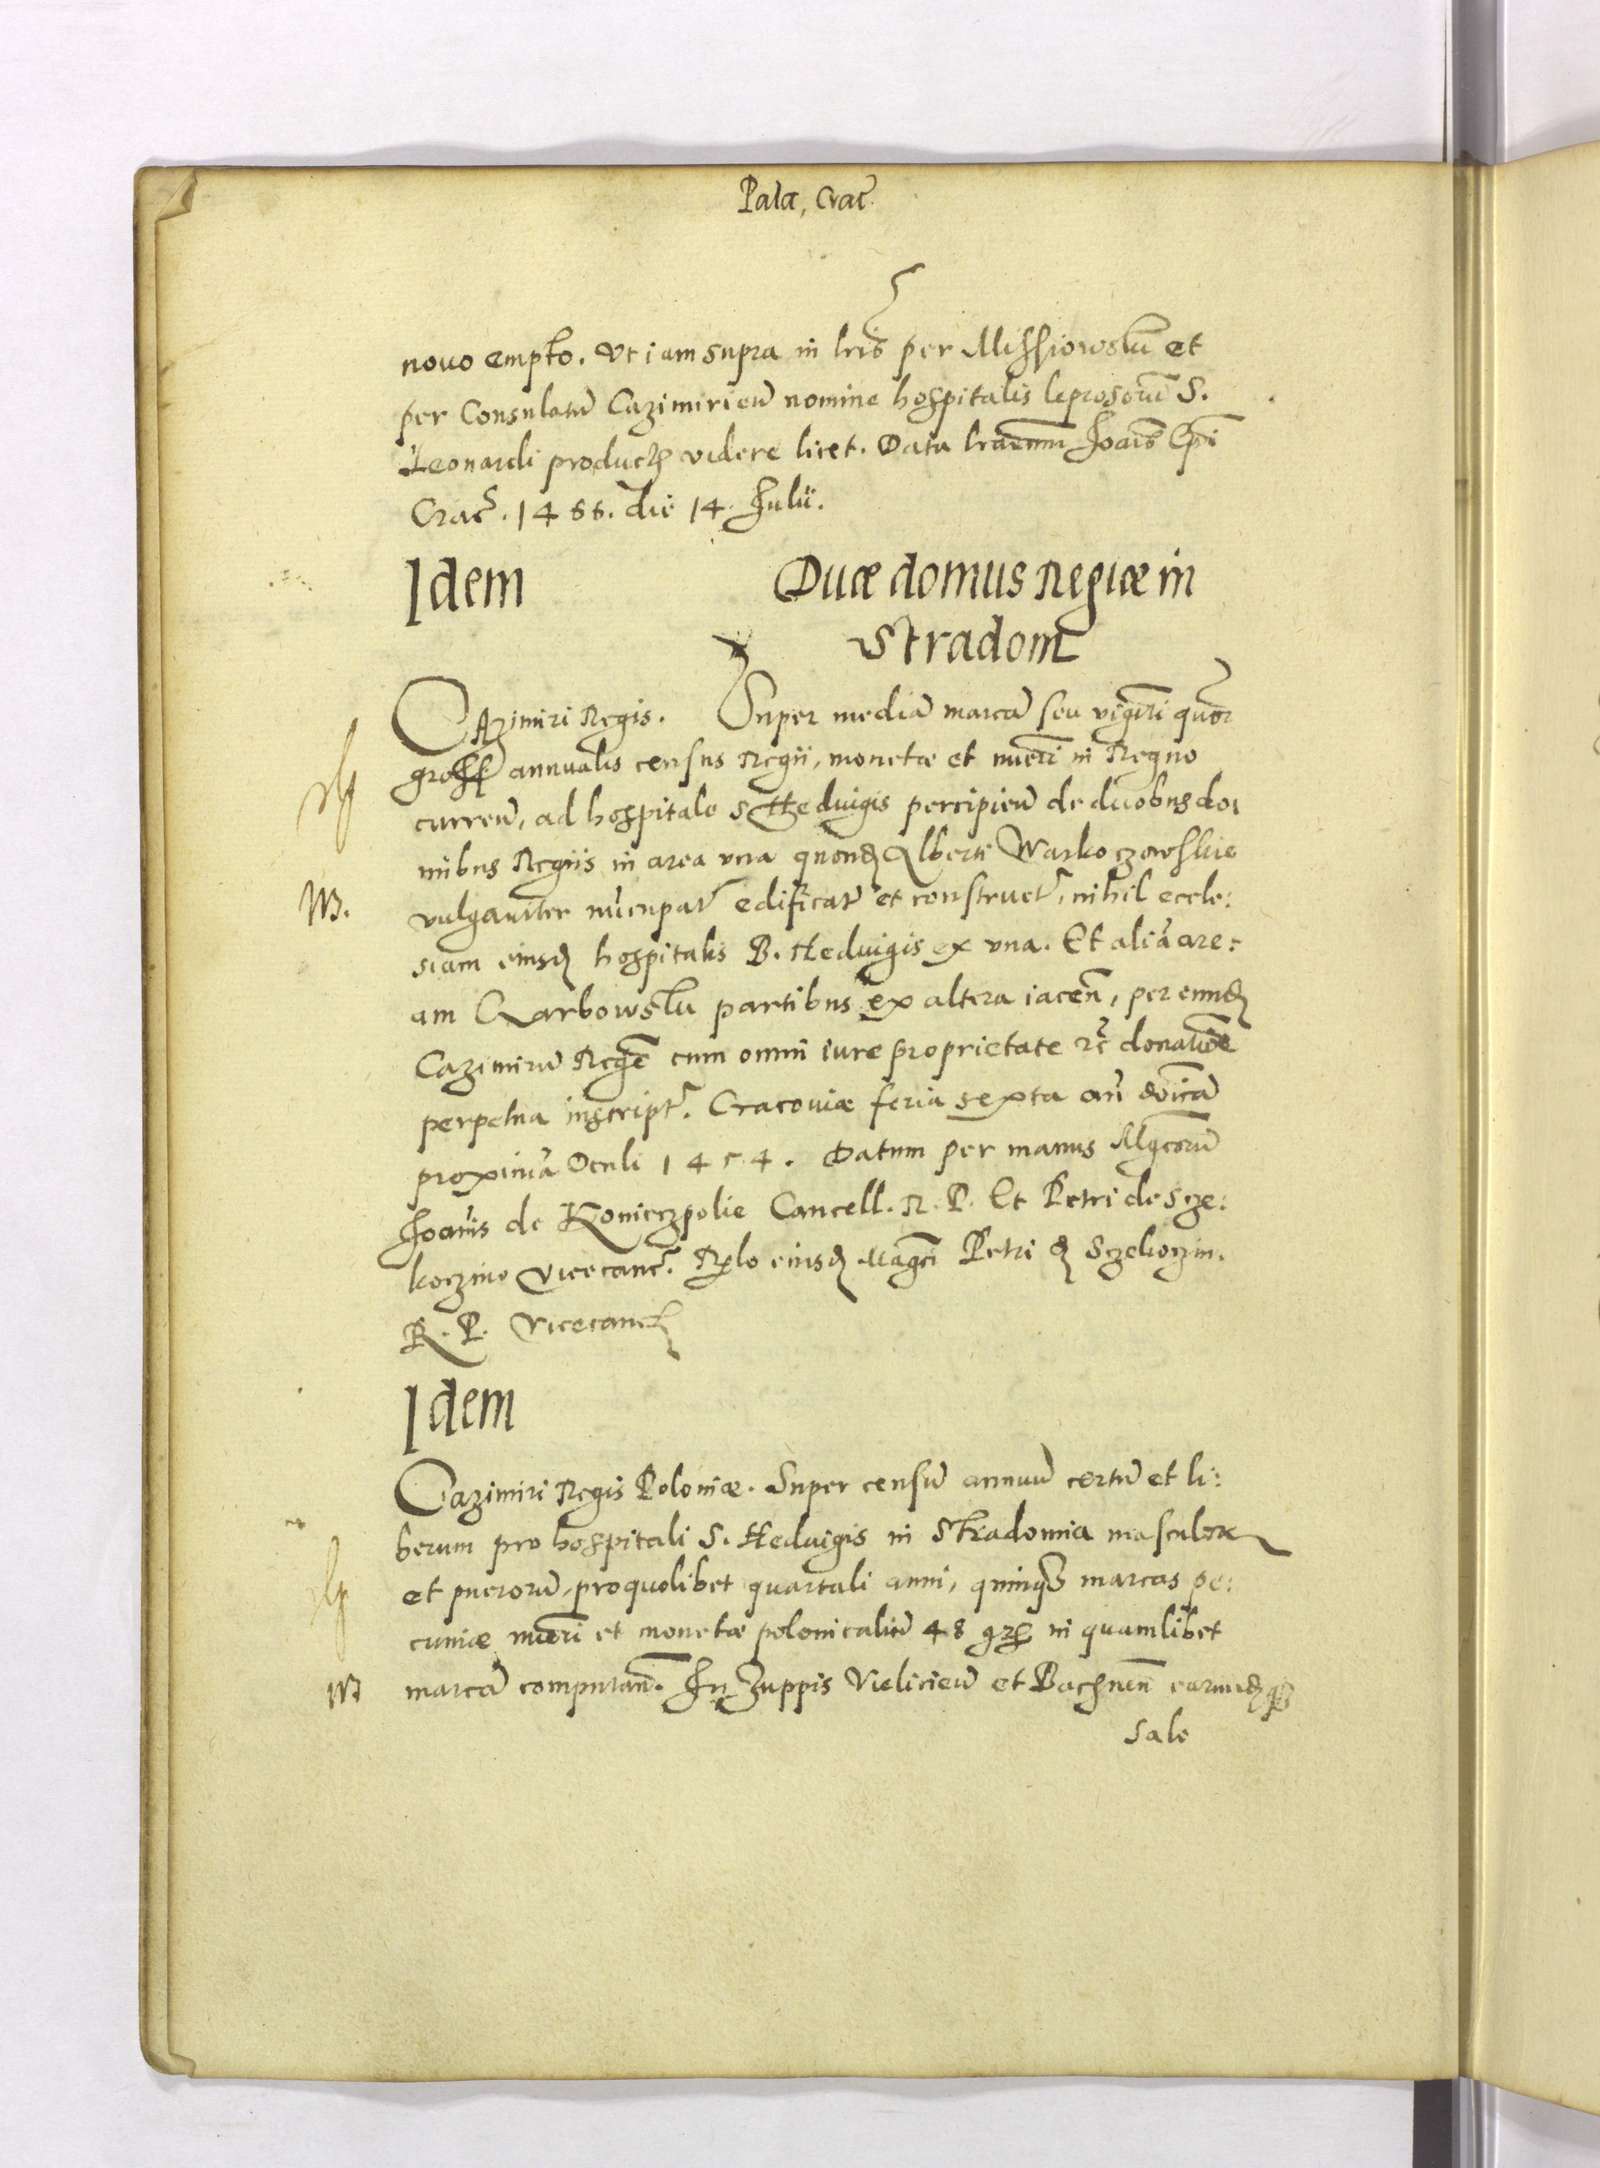 Pala, Crac̄.
novo empto. Vt iam supra in lris per Missiowsku et
per Consulatū Cazimirieñ nomine hospitalis leprosorū S.
Leonardi product videre licet. Data lrarum Joañis Epi
Crac̄. 1466. die 14. Julii.
Idem Duæ domus Regiæ in
Stradom
CAzimiri Regis. Super mediā marcā seu viginti quor
gross annualis census Regii, monetæ et nūeri in Regno
curreñ, ad hospitale S Heduigis percipieñ de duobus do:
mibus Regiis in area vna quond Alberti Warkoczowskie
vulgariter nūcupat edificat et construct, nihil eccle:
W.
siam eiusd hospitalis B. Heduigis ex vna. Et aliā are:
am Czarbowsku partibus ex altera iaceñ, per eund
Cazimirū Regē cum omni iure proprietate &c donatiōe
perpetua inscript. Cracouiæ feria sexta añ dnicā
proximā Oculi 1454. Datum per manus Mgcorū
Joañis de Konieczpolie Cancell. R. P. Et Petri de Scze:
koczino Vicecanc. Rlo eiusd Magci Petri d Sczekoczin.
R. P. Vicecanc
Idem
Cazimiri Regis Poloniæ. Super censū annuū certū et li:
berum pro hospitali S. Heduigis in Stradomia masculor
et puerorū, pro quolibet quartali anni, quinq marcas pe:
cuniæ nūeri et monetæ polonicaliū 48 gr in quamlibet
W
marcā computañ. In Zuppis Vielicieñ et Bachneñ earund
sale